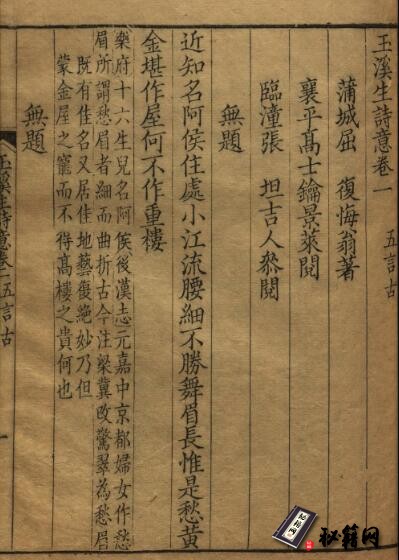 玉溪生詩意卷一 五言古
蒲城屈 復悔翁著
襄平髙士鑰景萊閱
臨潼張 坦吉人叅閱
無題
近知名阿侯住處小江流腰細不勝舞眉長惟是愁黃
金堪作屋何不作重樓
樂府十六生兒名阿侯後漢志元嘉中京都婦女作愁
眉所謂愁眉者細而曲折古今注梁冀改驚翠為愁眉
既有佳名又居佳地藝復絶妙乃但
蒙金屋之寵而不得髙樓之貴何也
無題
玉溪生詩意卷一五言古
一
秘籍网
秘籍网